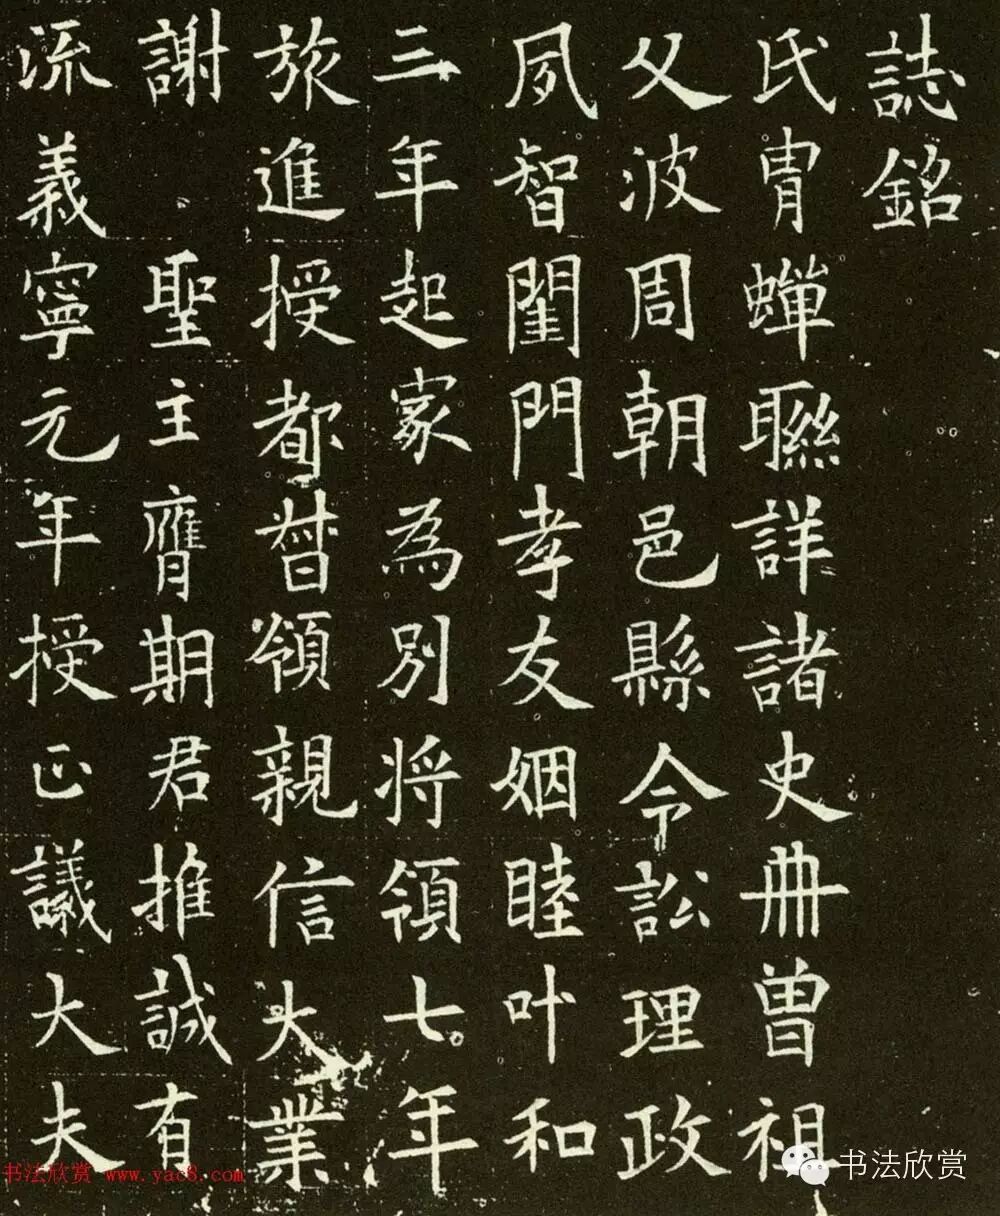 誌銘
氏胄蟬聯詳諸史冊曾祖
父波周朝邑縣令訟理政
夙智閨門孝友姻睦叶和
三年起家為別將領七年
旅進授都督領親信大業
謝聖主膺期君推誠有
流義寧元年授正議大夫
书法欣赏 www.yac8.com
书法欣赏